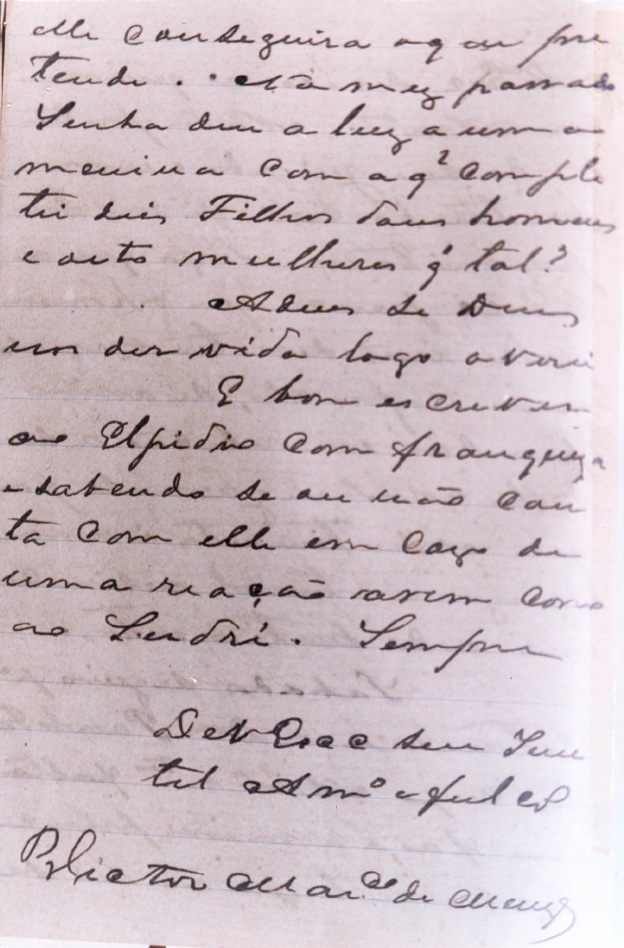 elle conseguira o q ou pre
tende. No mez passado
Senha deu a luz a uma
menina com a q.' comple
tei dis Filhos dous homens
e outo mulheres q' tal?
Adeus se Deus
nos der vida logo o verei
E bom escrever
ao Elpidio com franqueza
e sabendo se ou não con
ta com elle em cazo de
uma reação asim como
ao Leudri. Sempre
De VEcca seu Inu
til Amº e
Victor de